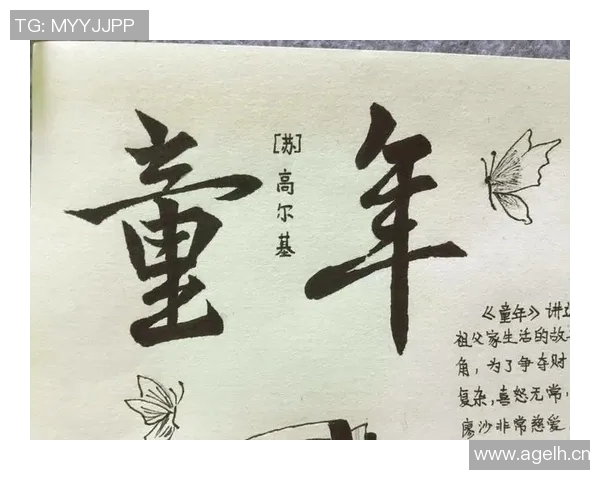 TG: MYYJJPP
童年
[苏]高尔基
《童年》讲
祖父家生活的故
角，为了争夺财
复杂，喜怒无常，
廖沙非常慈爱
www.agelh.cn